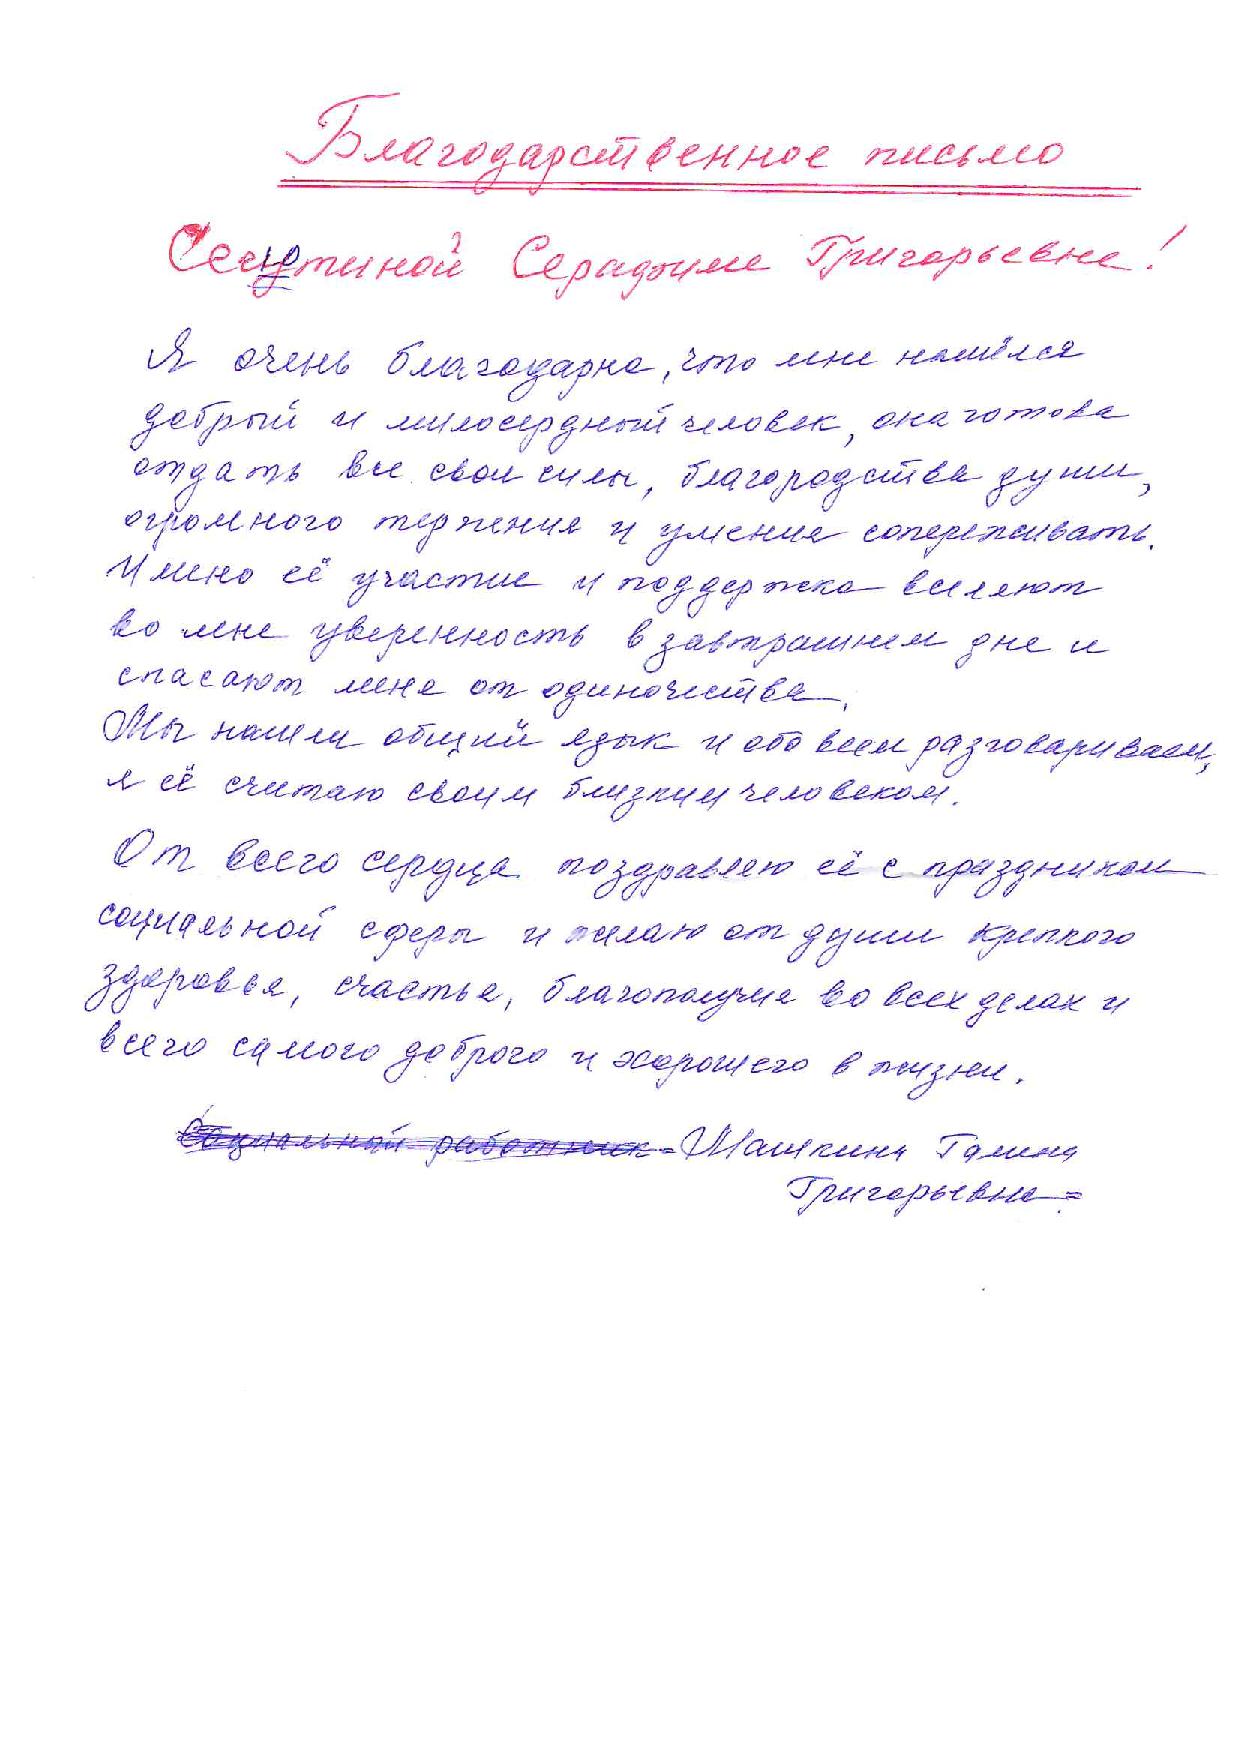 Благодарственное письмо
Серафиме Григорьевне!
Я очень благодарна, что мне нашёлся
добрый и милосердный человек, она готова
отдать все свои силы, благородства души,
огромного терпения и умения сопереживать.
Имено её участие и поддержка вселяют
во мне уверенность в завтрашнем дне и
спасают меня от одиночества.
Мы нашли общий язык и обо всем разговариваем,
я её считаю своим близким человеком.
От всего сердца поздравляю её с праздником
социальной сферы и желаю от души крепкого
здоровья, счастья, благополучия во всех делах и
всего самого доброго и хорошего в жизни.
Социальный работник - Шашкина Галина
Григорьевна